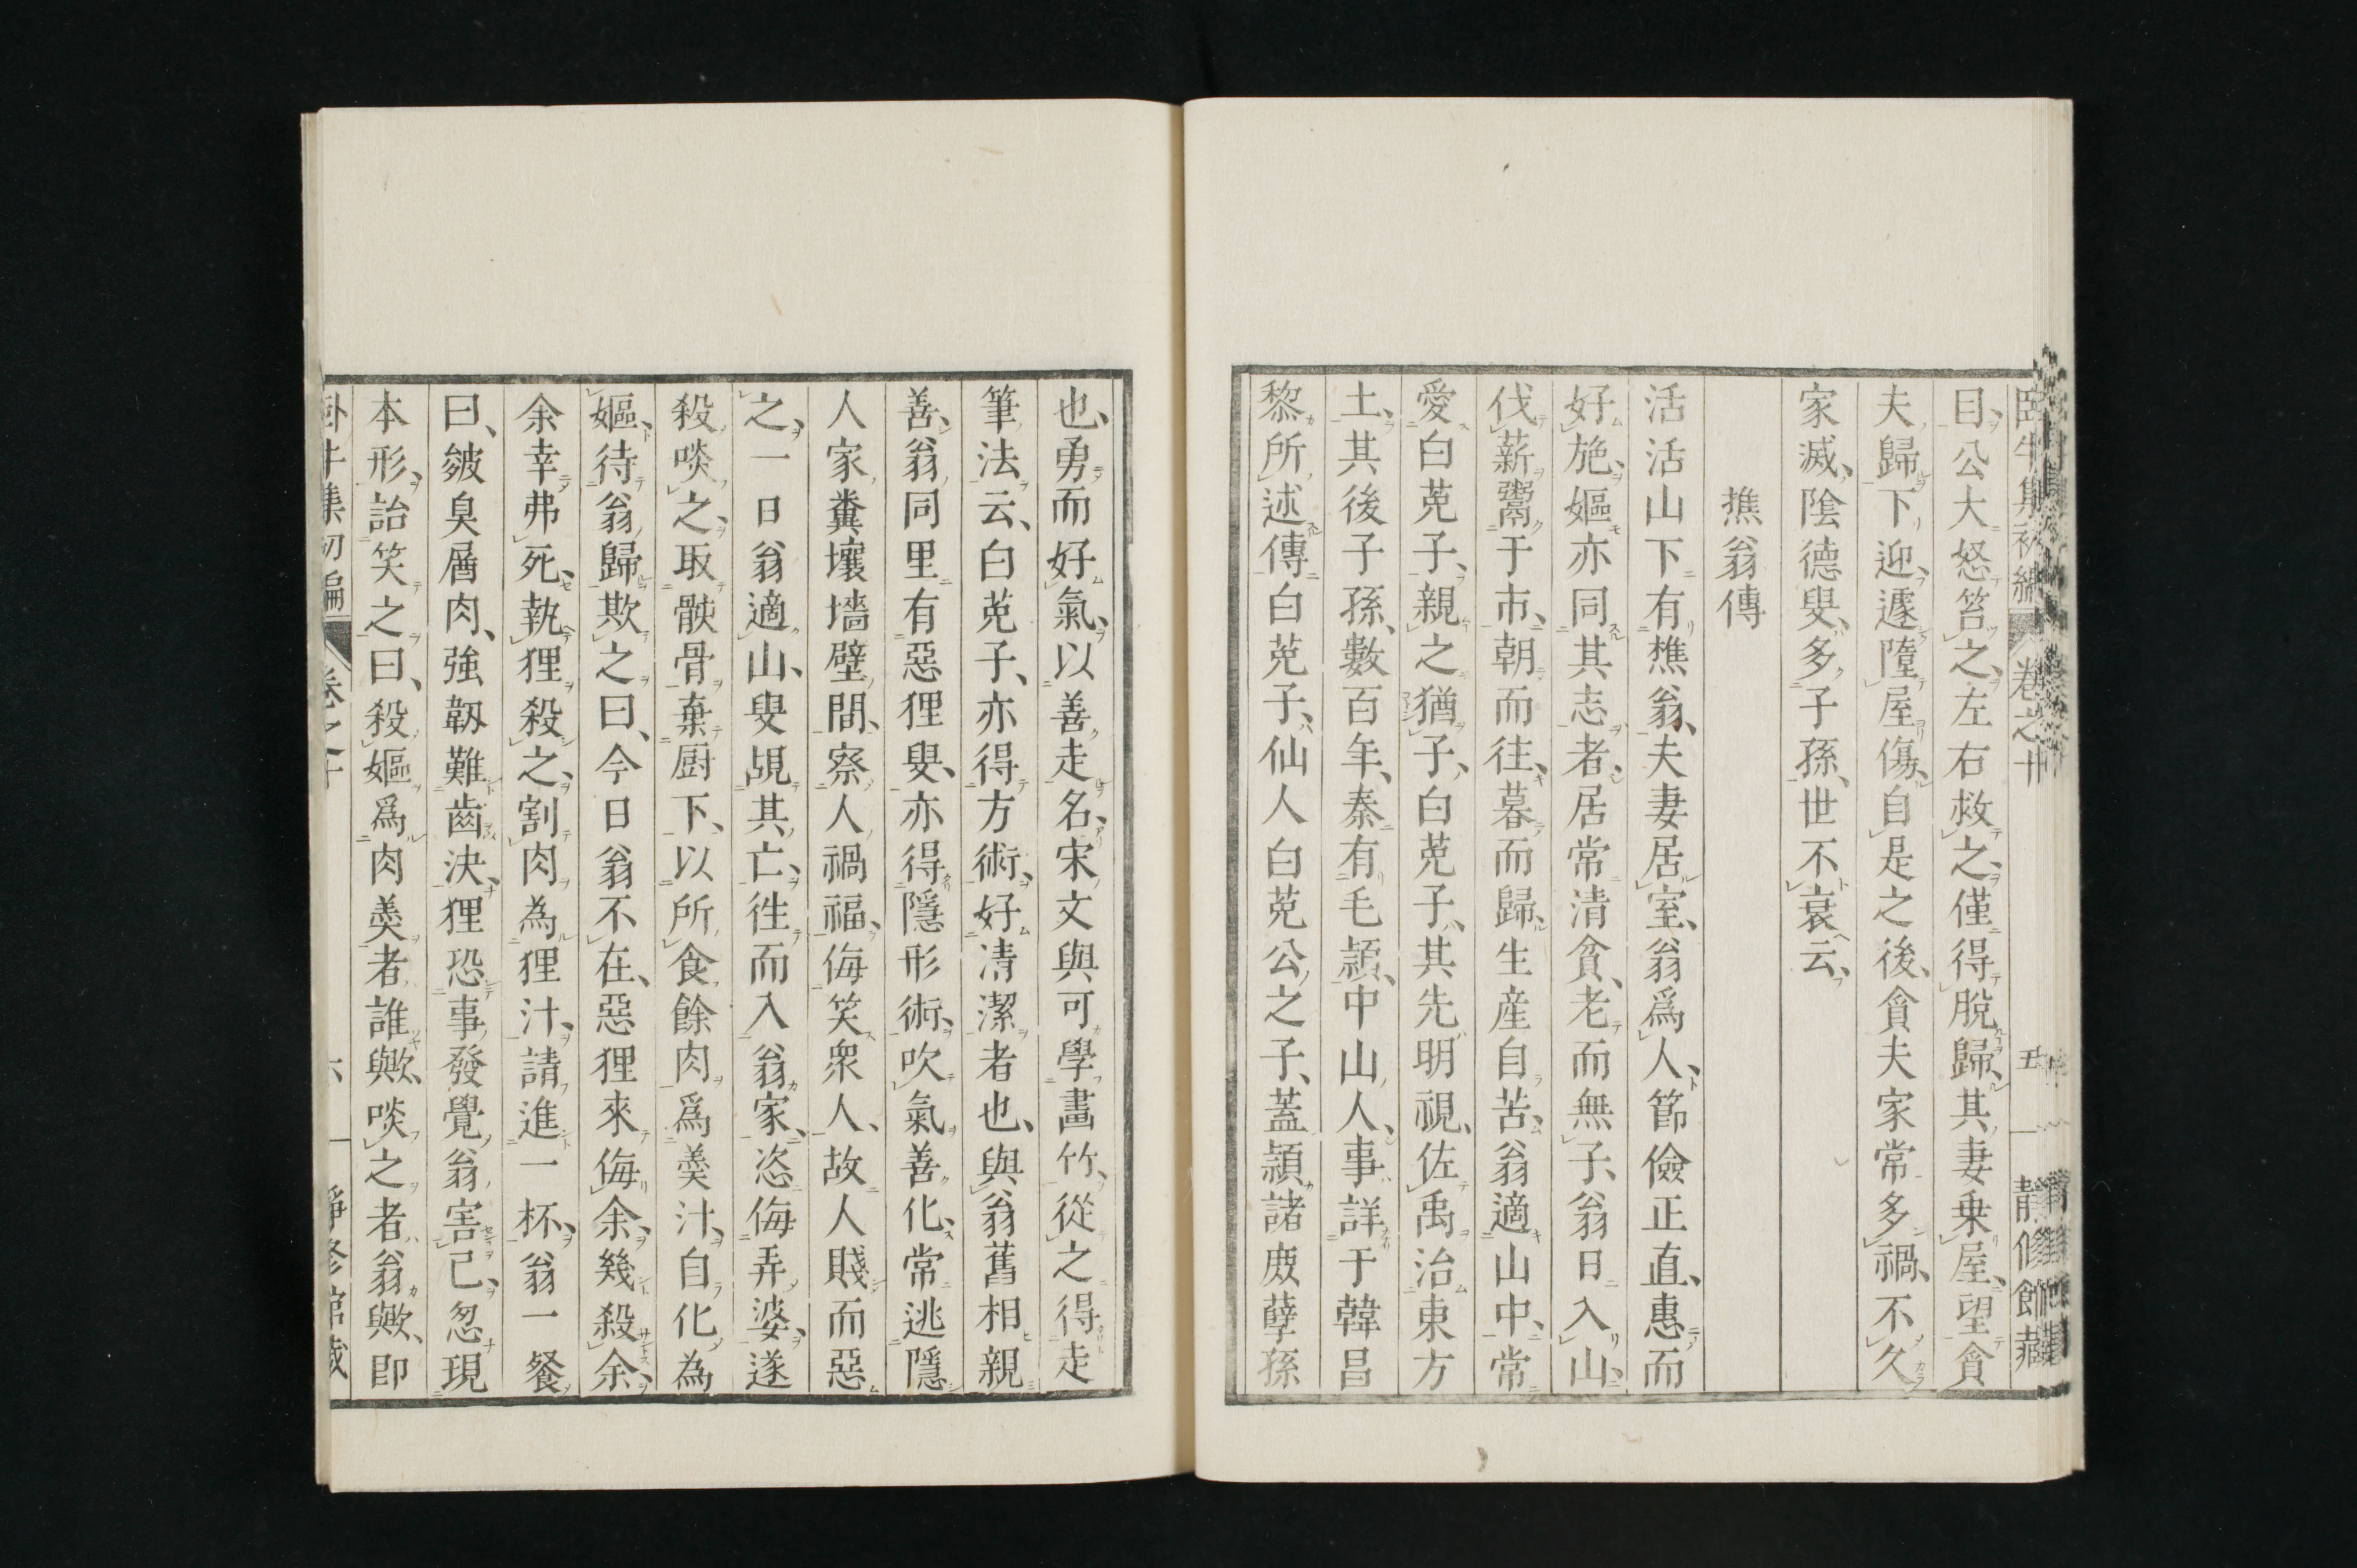 臥牛集初編 卷之十 五 靜修館藏
目、公大怒笞之、左右救之、僅得脫歸、其妻乗屋、望貪
夫歸下迎、遽墮屋傷、自是之後、貪夫家常多禍、不久
家滅、陰德叟、多子孫、世不衰云、
樵翁傳
活活山下有樵翁、夫妻居室、翁爲人、節儉正直、惠而
好施、嫗亦同其志者、居常清貧、老而無子、翁日入山、
伐薪鬻于市、朝而往、暮而歸、生産自苦、翁適山中、常
愛白茺子、親之猶子、白茺子、其先明視、佐禹治東方
土、其後子孫、數百年、秦有毛頴、中山人、事詳于韓昌
黎所述傳、白茺子、仙人白茺公之子、蓋頴諸庶孽孫
也、勇而好氣、以善走名、宋文與可學畫竹、從之得走
筆法云、白茺子、亦得方術、好清潔者也、與翁舊相親
善、翁同里有惡狸叟、亦得隱形術、吹氣善化、常逃隱
人家糞壤墻壁間、察人禍福、侮笑衆人、故人賤而惡
之、一日翁適山、叟覘其亡、徃而入翁家、恣侮弄婆、遂
殺啖之、取骸骨棄厨下、以所食餘肉爲羹汁、自化為
嫗、待翁歸欺之曰、今日翁不在、惡狸來侮余、幾殺余、
余幸弗死、執狸殺之、割肉為狸汁、請進一杯、翁一餐
曰、皴臭層肉、強韌難齒決、狸恐事發覺、翁害己、忽現
本形、詒笑之曰、殺嫗爲肉羹者誰歟、啖之者翁歟、即
臥牛集初編 卷之十 六 靜修館藏